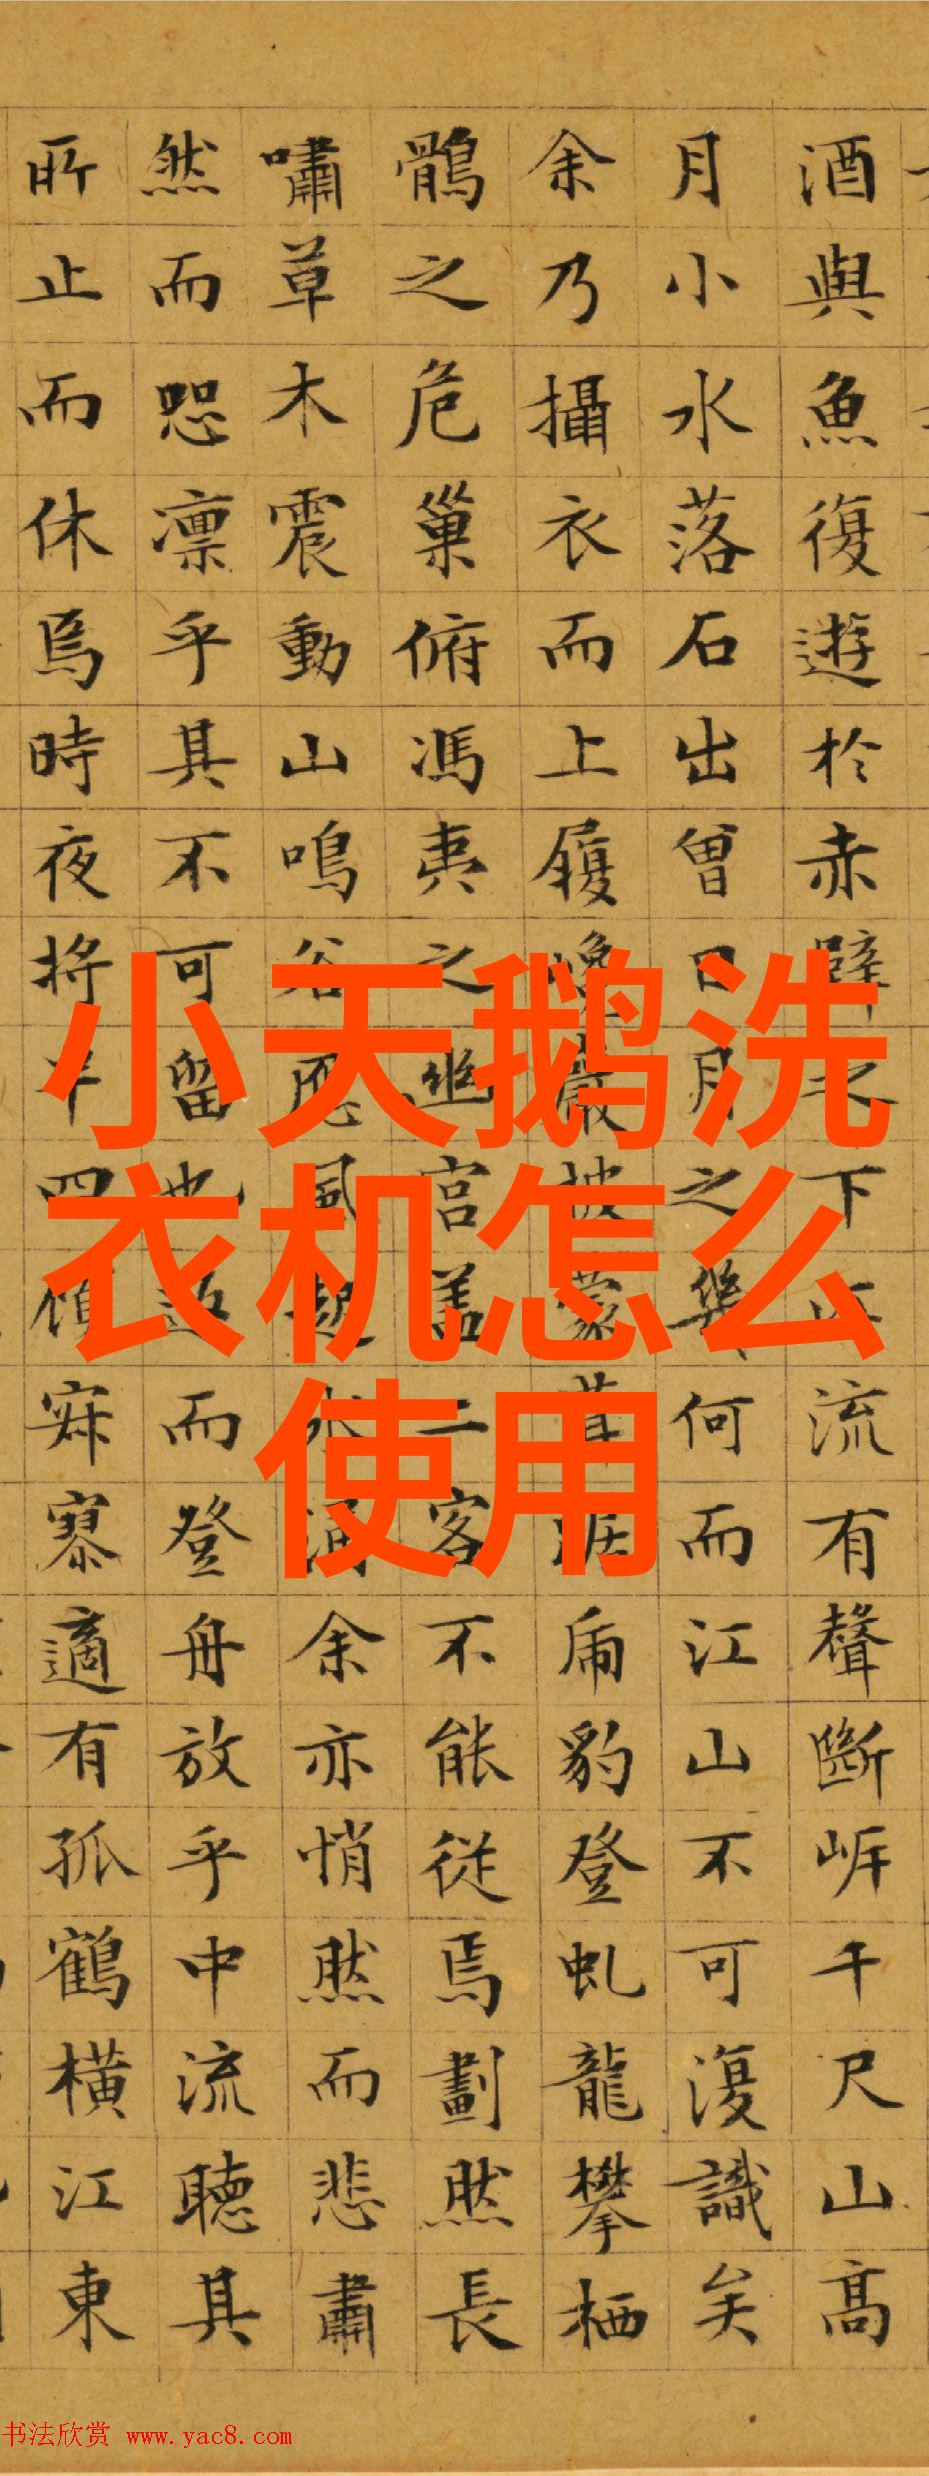 酒與魚復遊於赤壁之下江流有聲斷岸千尺山高
月小水落石出曾日月之幾何而江山不可復識矣
余乃攝衣而上履巉巖披蒙茸踞虎豹登虬龍攀栖
鶻之危巢俯馮夷之幽宮蓋二客不能從焉劃然長
嘯草木震動山鳴谷應風起水涌余亦悄然而悲肅
然而恐凛乎其不可留也返而登舟放乎中流聽其
所止而休焉時夜將半四顧寂寥適有孤鶴橫江東
小天鹅洗
衣机怎么
使用
书法欣赏 www.yac8.com